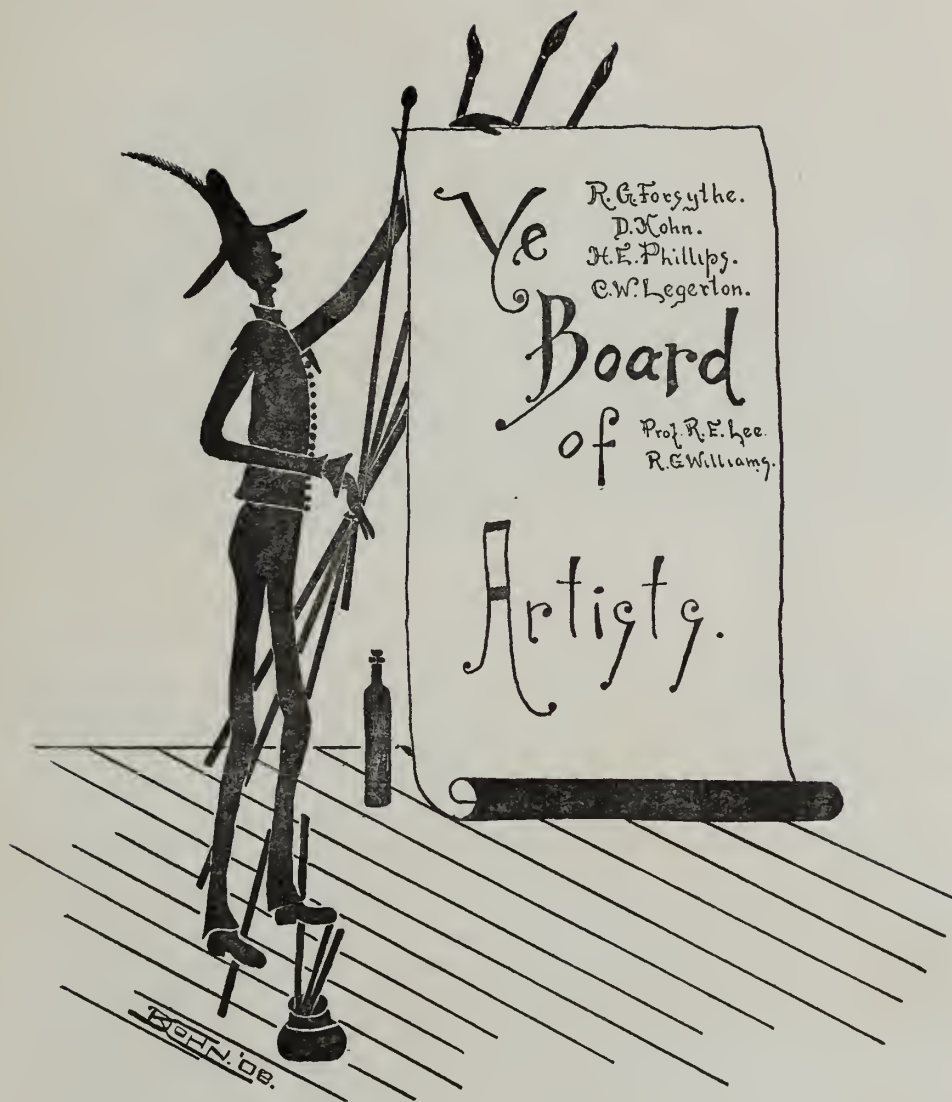 Ye
R.G.Forsythe.
D.Kohn.
H.E.Phillips.
C.W.Legerton.
Board
of
Prof. R.E. Lee.
R.G Williams.
Artists.
KOHN.'08.